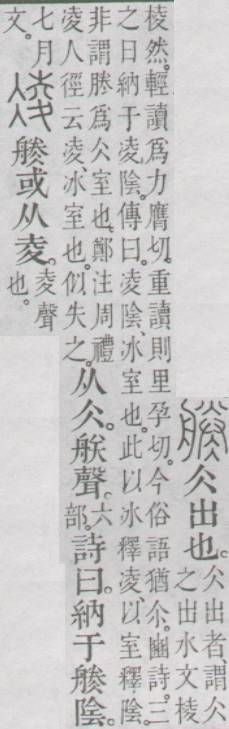 仌出也。仌出者、謂仌
之出水文棱
棱然。輕讀爲力膺切。重讀則里孕切。今俗語猶尒。豳詩。三
之日納于凌陰。傳曰。凌陰、冰室也。此以冰釋凌、以室釋陰。
非謂爲仌室也。鄭注周禮
凌人徑云凌、冰室也。似失之。
从仌。朕聲。六部。詩曰。納于陰。
七月文。
或从夌。夌聲也。